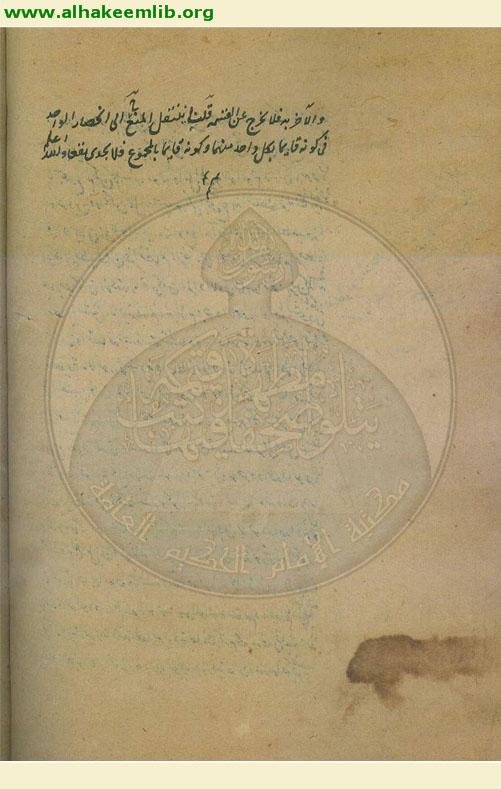 www.alhakeemlib.org
والآخر به فلا يخرج عن القسمة قلت ينتقل المنع الى انحصار الواحد
في كونه قايما بكل واحد منهما وكونه قايما بالمجموع فلا يجدى نفعا والله اعلم
رسول الله
يتلو صحفا مطهرة فيها كتب قيمة
مكتبة الإمام الحكيم العامة